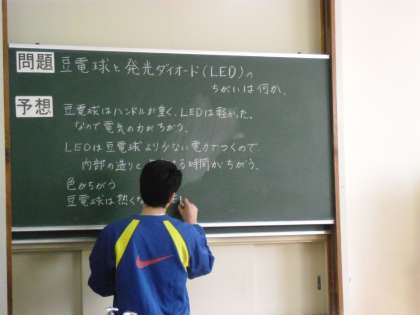 問題 豆電球と発光ダイオード(LED)の
ちがいは何か、
予想 豆電球はハンドルが重く、LEDは軽かった。
なので電気の力がちがう。
LEDは豆電球より少ない電力でつくので
内部の造りと る時間がちがう。
色がちがう
豆電球は熱く